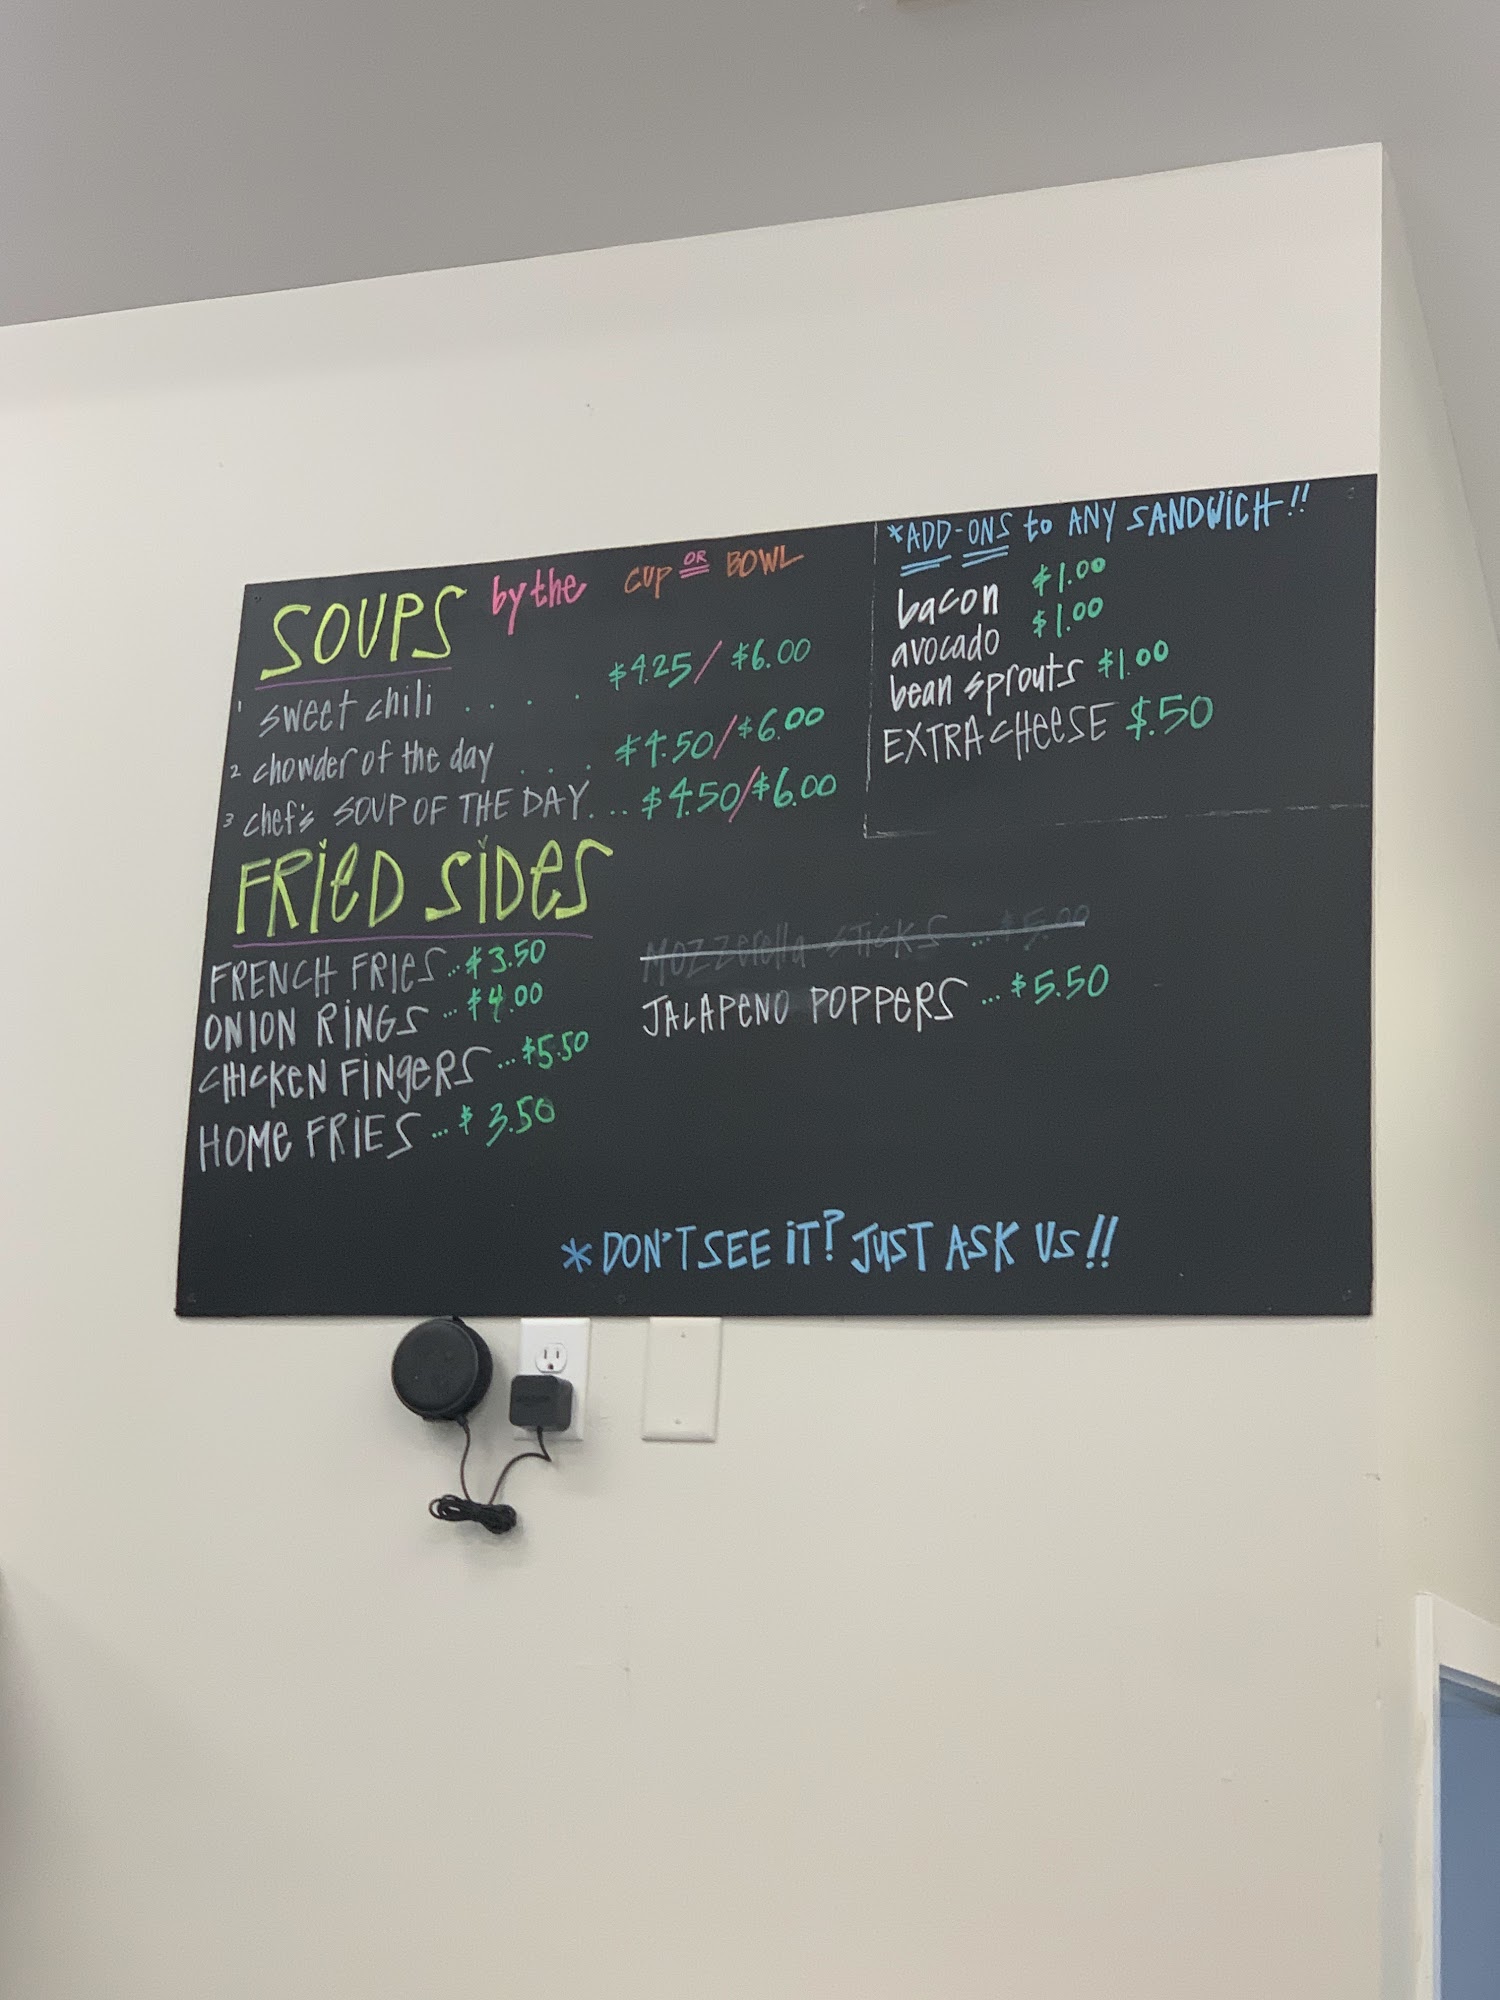 SOUPS by the CUP OR BOWL
1 sweet chili . . . . $4.25/$6.00
2 chowder of the day . . . $4.50/$6.00
3 chef's SOUP OF THE DAY... $4.50/$6.00
*ADD-ONS to ANY SANDWiCH!!
bacon $1.00
avocado $1.00
bean sprouts $1.00
EXTRA CHeeSE $.50
FRieD SiDeS
FRENCH FRIES...$3.50
ONION RiNGS...$4.00
CHICKeN FiNgeRS...$5.50
HOMe FRiES...$3.50
MOZZerella STicKS ...$5.00
JALAPeNO POPPeRS ...$5.50
*DON'T SEE iT? JUST ASK US!!